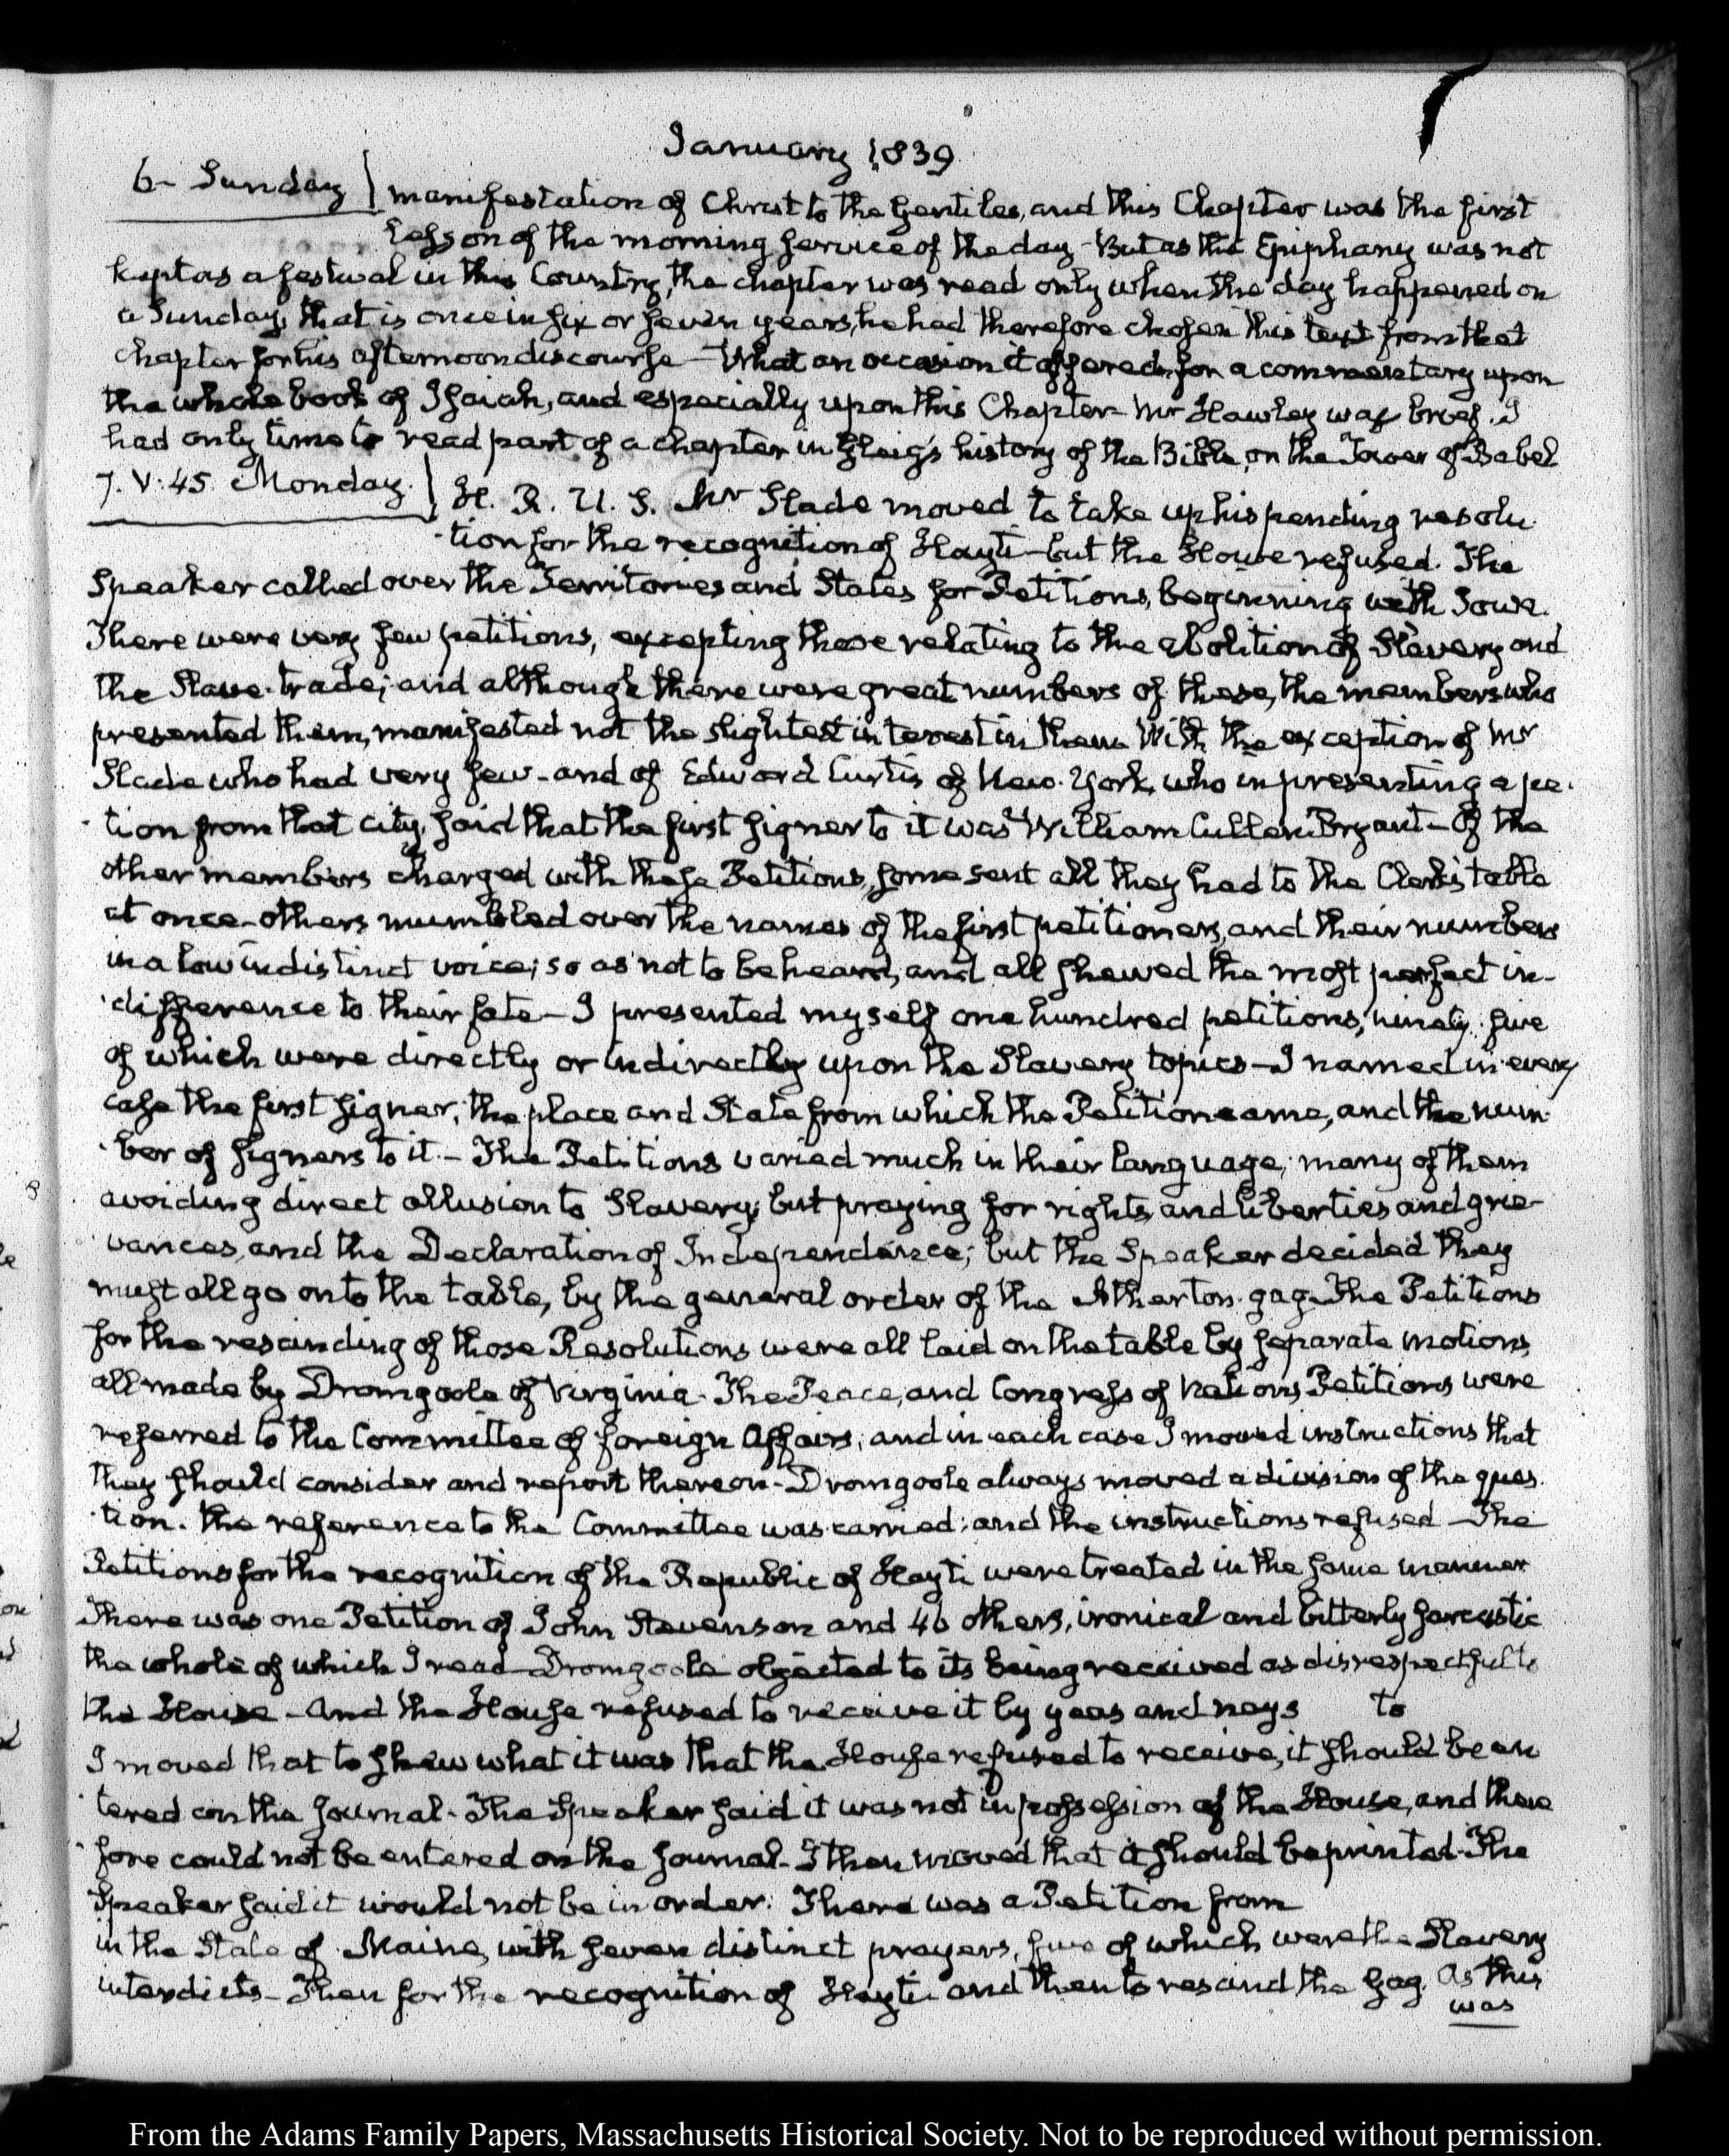 January 1839
6- Sunday manifestation of Christ to the Gentiles, and this Chapter was the first
Lesson of the morning service of the day - But as the Epiphany was not
kept as a festival in this Country, the chapter was read only when the day happened on
a Sunday, that is once in six or seven years, he had therefore chosen this text from that
chapter for his afternoon discourse - What an occasion it offered, for a commentary upon
the whole book of Isaiah, and especially upon this Chapter - Mr Hawley was brief. I
had only time to read part of a chapter in Gleig's history of the Bible, on the Tower of Babel
7. V:45. Monday. H. R. U. S. Mr Slade moved to take up his pending resolu
tion for the recognition of Hayti - but the House refused. The
Speaker called over the Territories and States for Petitions, beginning with Iowa.
There were very few petitions, excepting those relating to the abolition of Slavery and
the Slave-trade; and although there were great numbers of these, the members who
presented them, manifested not the slightest interest in them With the exception of Mr
Slade who had very few - and of Edward Curtis of New-York, who in presenting a pe-
tion from that city, said that the first signer to it was William Cullen Bryant - Of the
other members charged with these Petitions, some sent all they had to the Clerk's table
at once - others mumbled over the names of the first petitioners, and their numbers
in a low indistinct voice; so as not to be heard, and all shewed the most perfect in-
difference to their fate - I presented myself one hundred petitions, ninety-five
of which were directly or indirectly upon the Slavery topics - I named in every
case the first signer; the place and State from which the Petition came, and the num-
ber of signers to it. - The Petitions varied much in their language; many of them
avoiding direct allusion to Slavery; but praying for rights and liberties and grie-
vances, and the Declaration of Independence; but the Speaker decided they
must all go on to the table, by the general order of the Atherton gag. The Petitions
for the rescinding of those Resolutions were all laid on the table by separate motions,
all made by Dromgoole of Virginia - The Peace, and Congress of Nations Petitions were
referred to the Committee of foreign Affairs; and in each case I moved instructions that
they should consider and report thereon - Dromgoole always moved a division of the ques-
tion. the reference to the Committee was carried; and the instructions refused - The
Petitions for the recognition of the Republic of Hayti were treated in the same manner
There was one Petition of John Stevenson and 46 others, ironical and bitterly sarcastic
the whole of which I read - Dromgoole objected to its being received as disrespectful to
the House - And the House refused to receive it by yeas and nays to
I moved that to shew what it was that the House refused to receive, it should be en
tered on the Journal - The Speaker said it was not in possession of the House, and there
fore could not be entered on the Journal - I then moved that it should be printed - The
Speaker said it would not be in order. There was a Petition from
in the State of Maine, with seven distinct prayers, five of which were the Slavery
interdicts - Then for the recognition of Hayti - and then to rescind the gag. As this
was
From the Adams Family Papers, Massachusetts Historical Society. Not to be reproduced without permission.